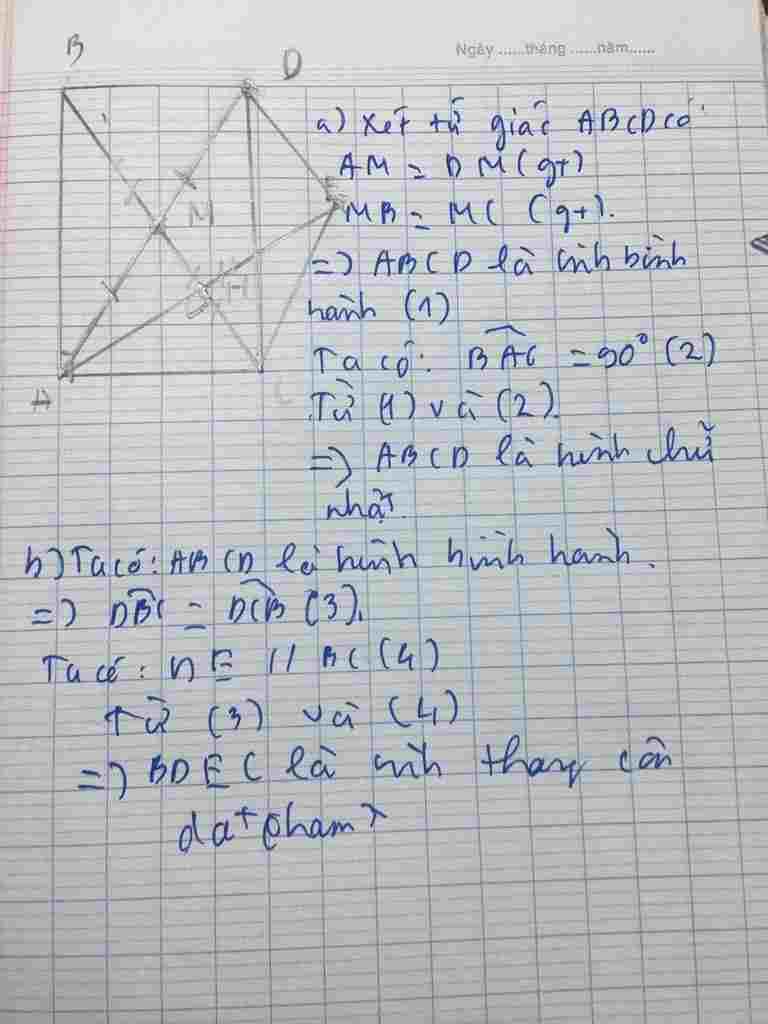 B
D
Ngày ......tháng ......năm......
a) Xét tứ giác ABCD có:
AM = DM (gt)
M
MB = MC (gt).
H
=) ABCD là hình bình
hành (1)
Ta có: BAC = 90° (2)
A
C
Từ (1) và (2)
=) ABCD là hình chữ
nhật
b) Ta có: ABCD là hình bình hanh.
=) DBC = DCB (3).
Ta có: DE // BC (4)
từ (3) và (4)
=) BDEC là hình thang cân